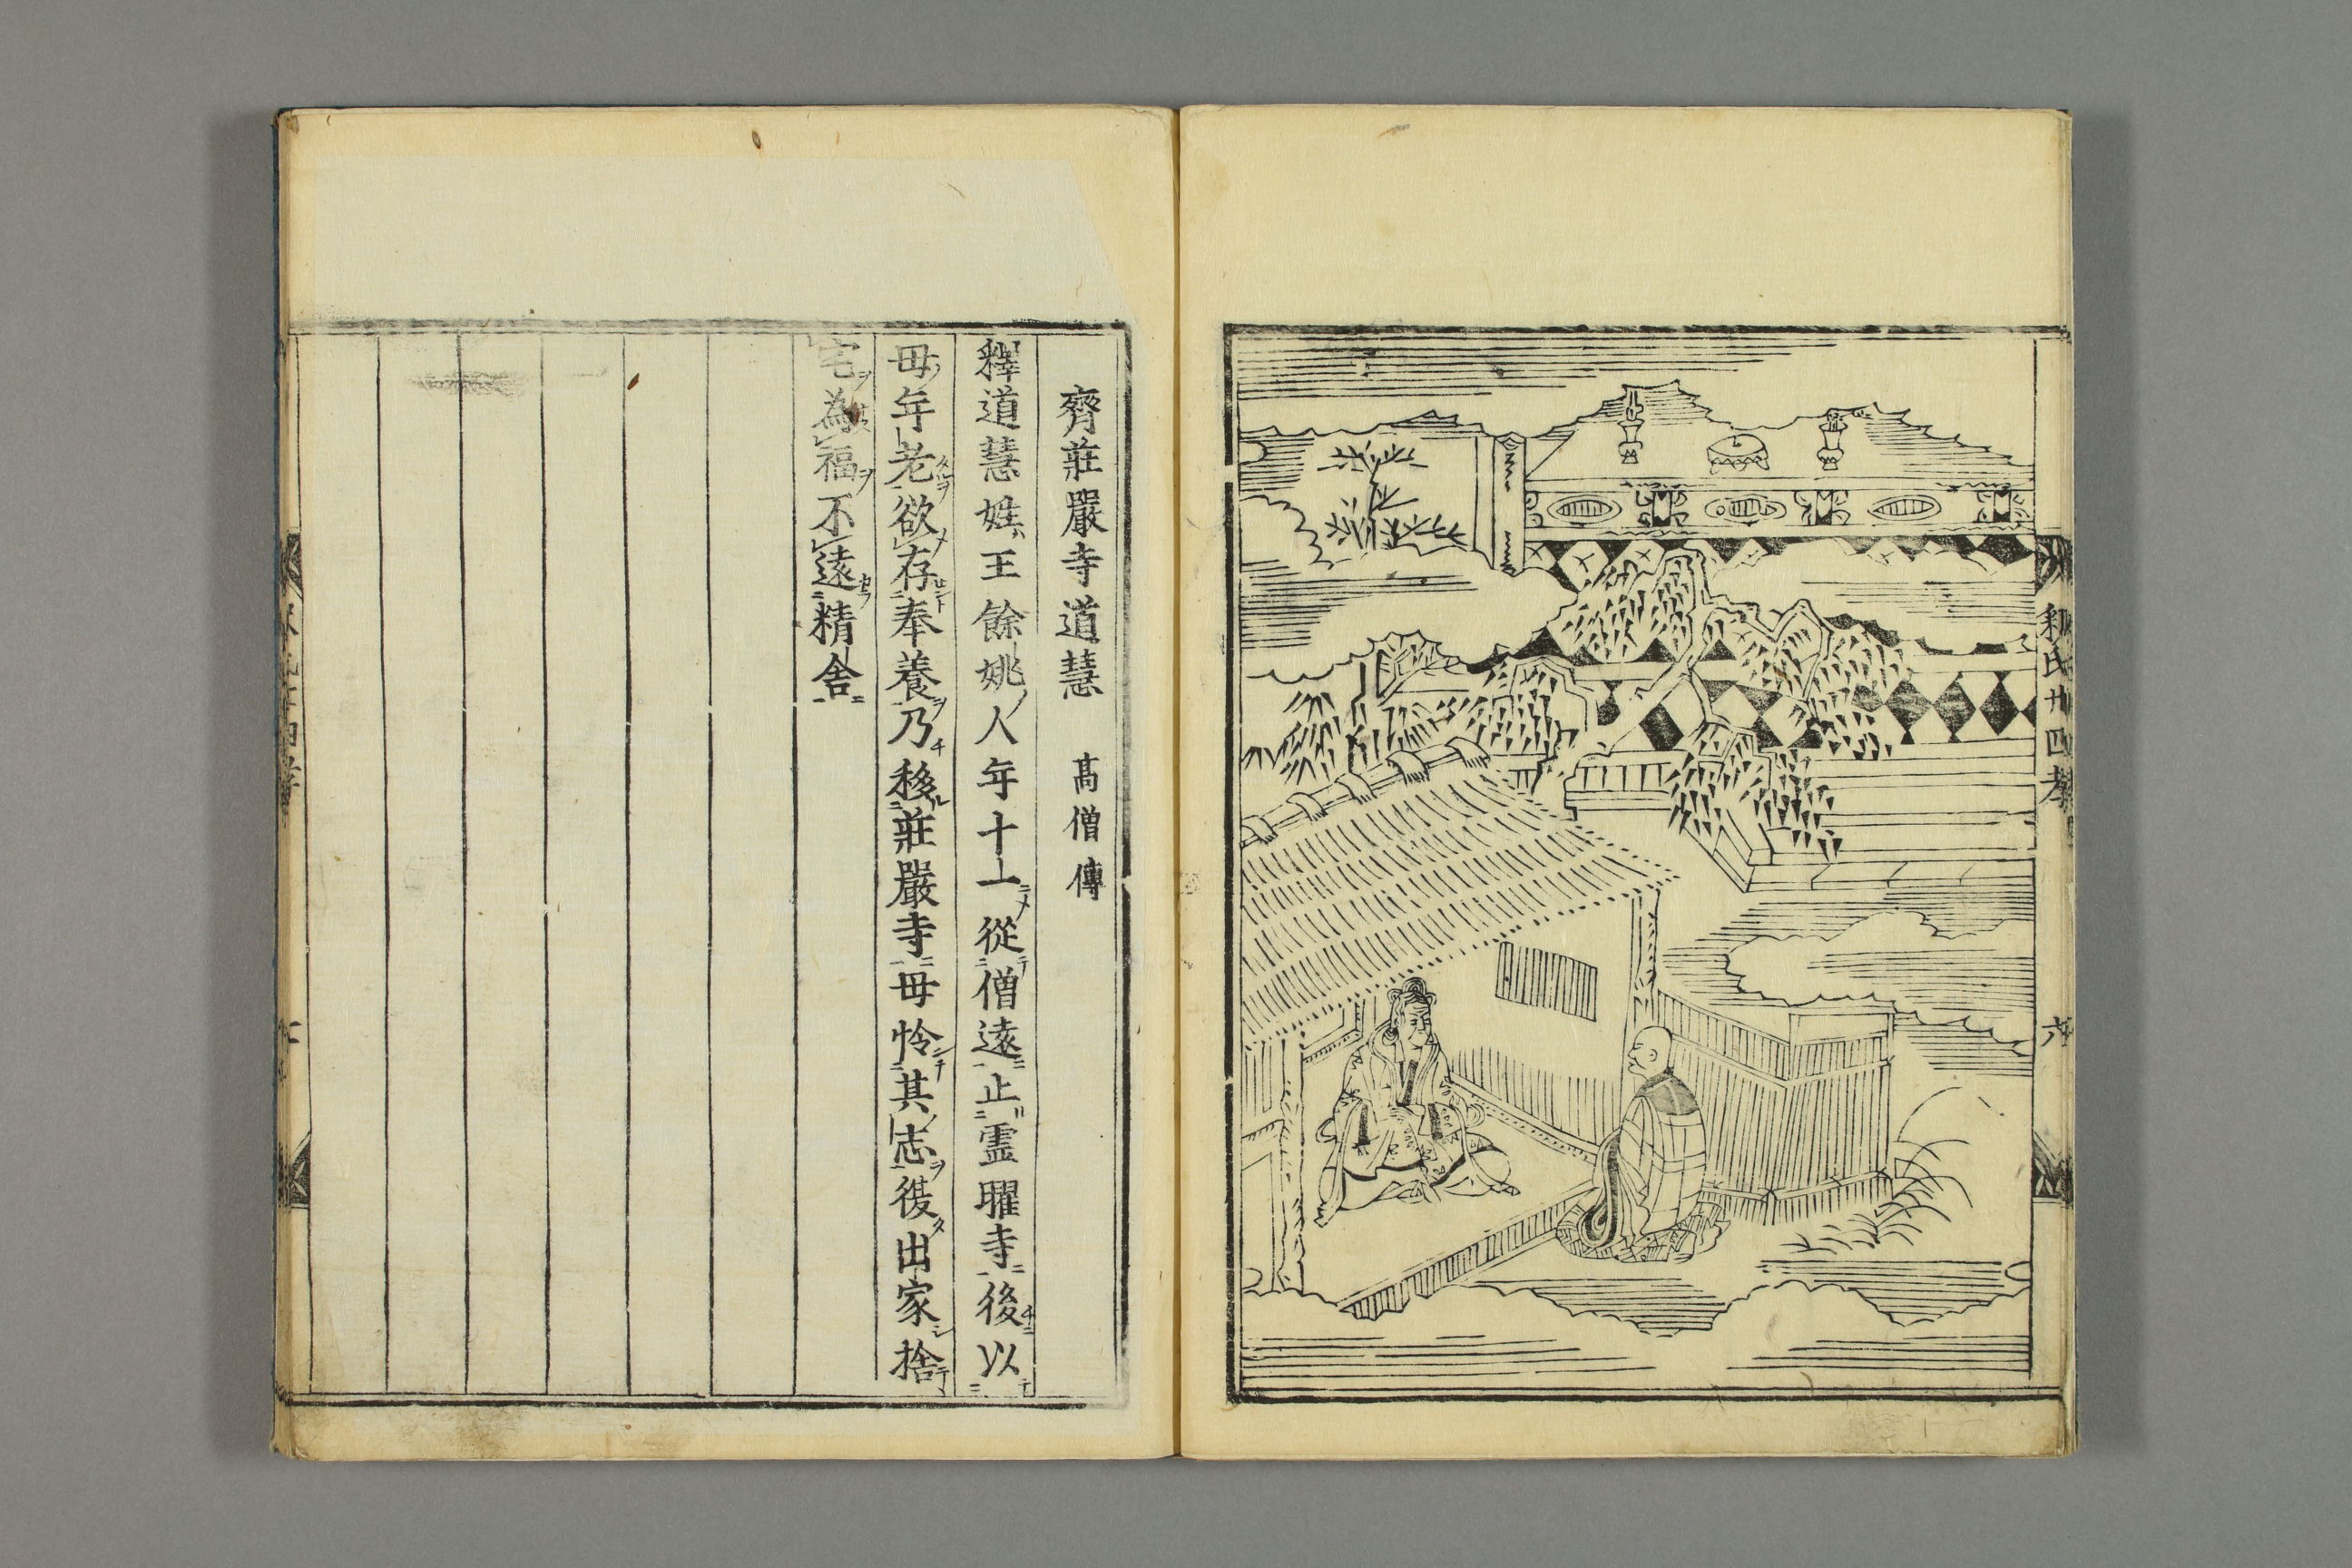 釈氏廿四孝
六
齊莊嚴寺道慧　高僧傳
釋道慧姓王餘姚人年十一從僧遠止霊曜寺後以
母年老欲存奉養乃移莊嚴寺母怜其志復出家捨
宅為福不遠精舍